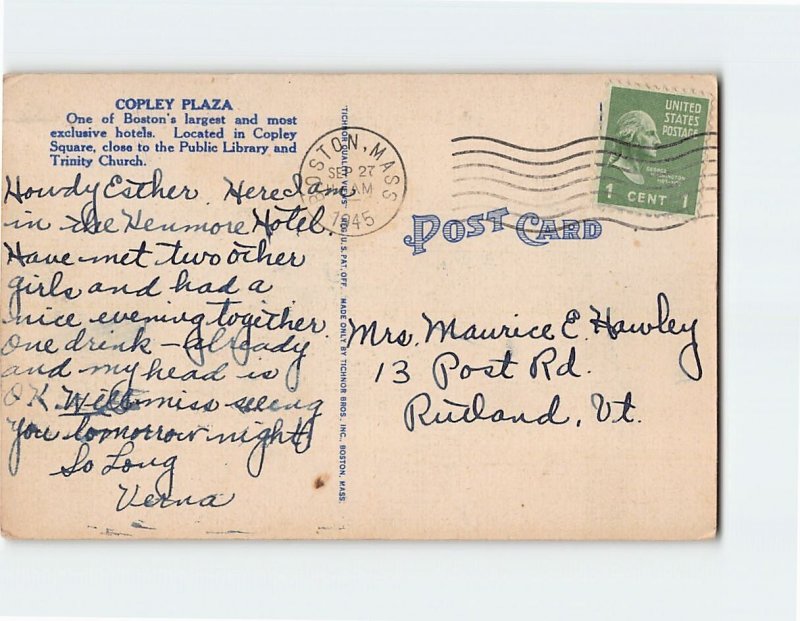 COPLEY PLAZA
One of Boston's largest and most
exclusive hotels. Located in Copley
Square, close to the Public Library and
Trinity Church.
Howdy Esther. Here I am
in the Kenmore Hotel.
Have met two other
girls and had a
nice evening together.
One drink - already
and my head is
OK. Will miss seeing
you tomorrow night.
So Long
Verna
"TICHNOR QUALITY VIEWS" REG. U. S. PAT. OFF. MADE ONLY BY TICHNOR BROS., INC., BOSTON, MASS.
BOSTON, MASS
SEP 27
AM
1945
UNITED
STATES
POSTAGE
GEORGE
WASHINGTON
1 CENT 1
POST CARD
Mrs. Maurice E. Hawley
13 Post Rd.
Rutland, Vt.